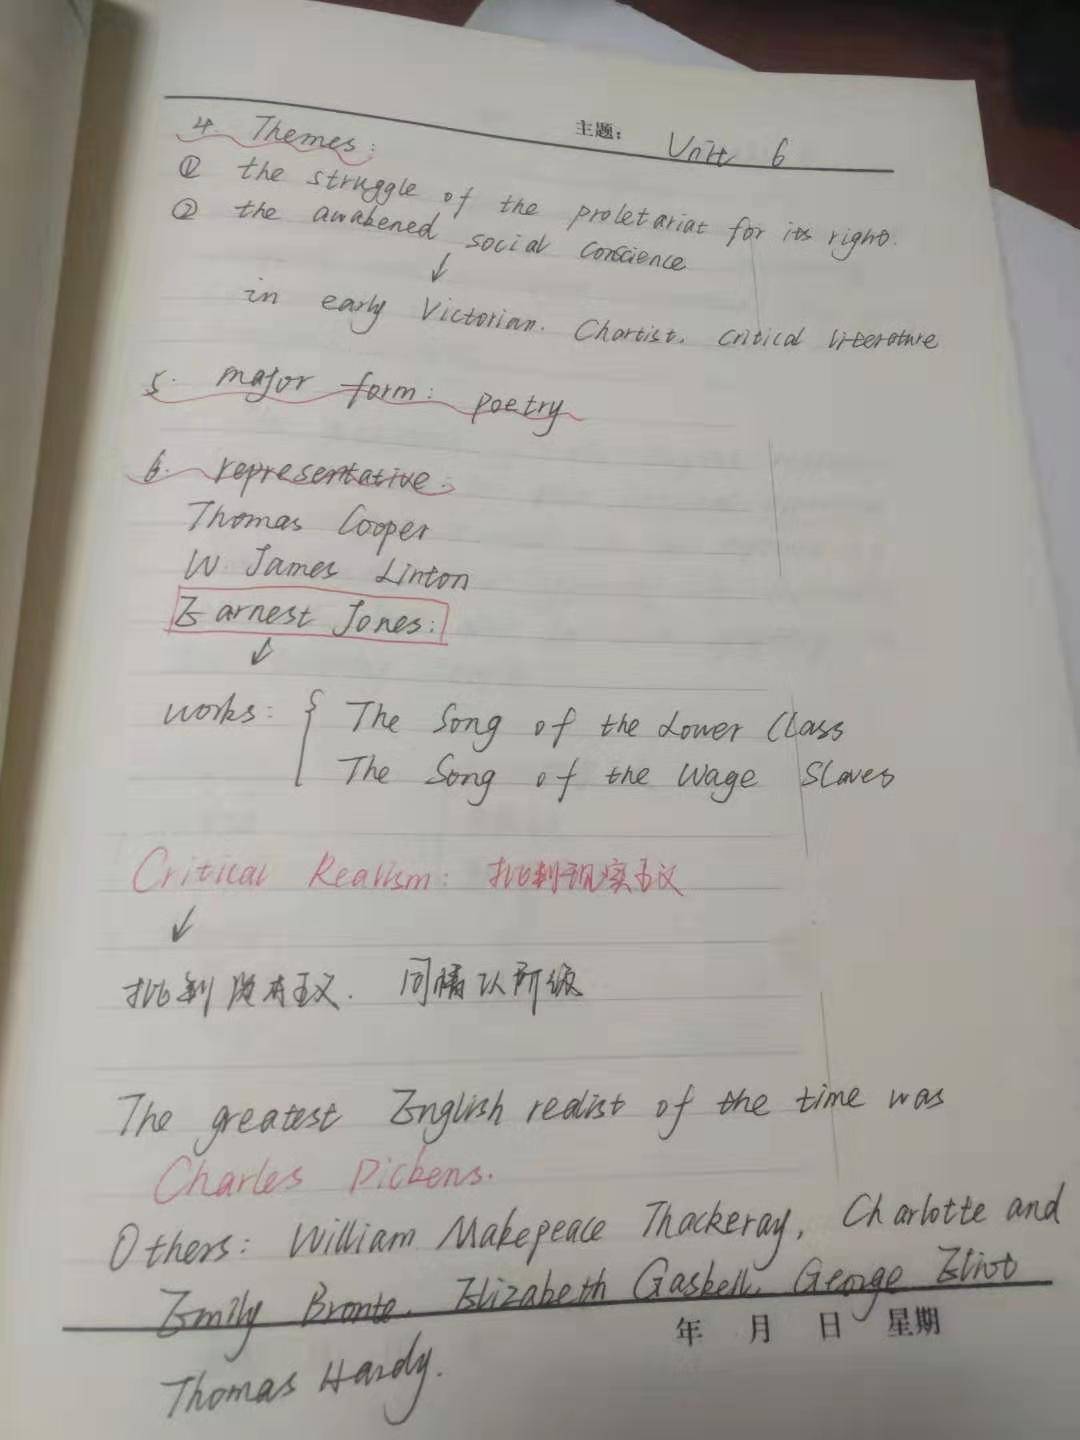 主题： Unit 6
4. Themes:
① the struggle of the proletariat for its right.
② the awakened social conscience
↓
in early Victorian. Chartist. critical literature
5. major form: poetry
6. representative:
Thomas Cooper
W. James Linton
Earnest Jones:
↓
works: { The Song of the Lower Class
The Song of the Wage Slaves
Critical Realism: 批判现实主义
↓
批判资本主义. 同情以阶级
The greatest English realist of the time was
Charles Dickens.
Others: William Makepeace Thackeray, Charlotte and
Emily Bronte, Elizabeth Gaskell, George Eliot
年 月 日 星期
Thomas Hardy.